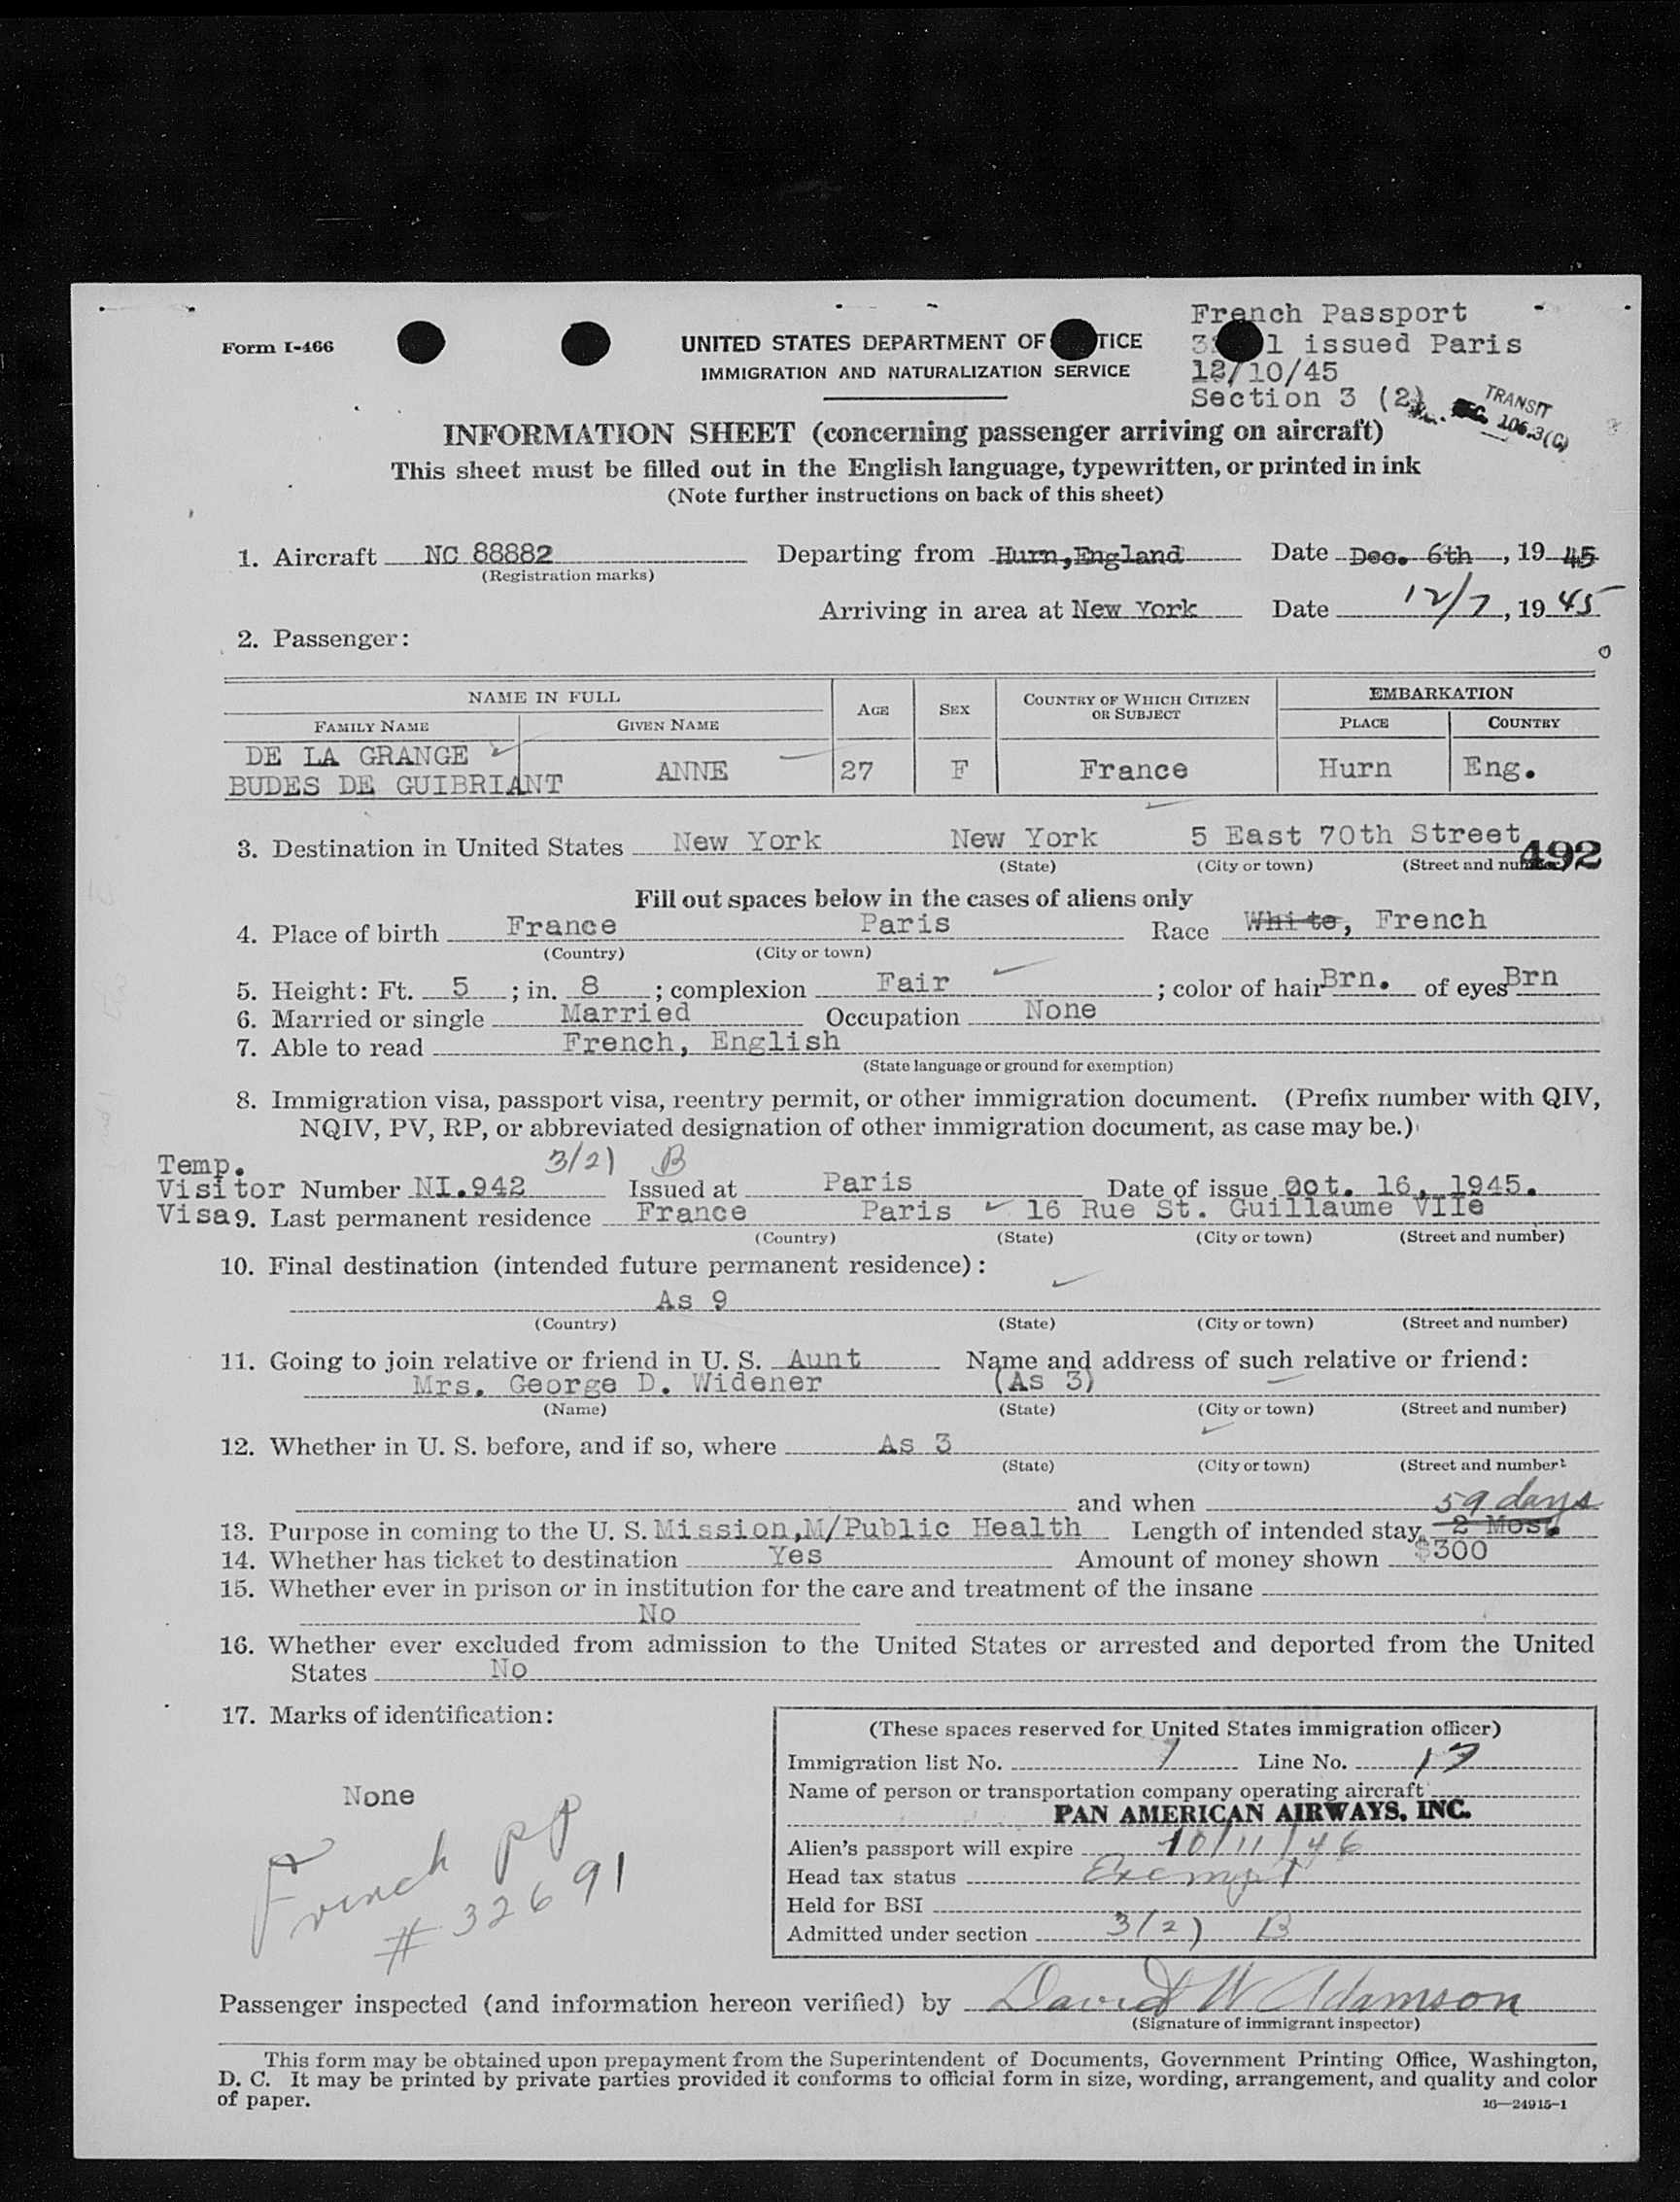 French Passport
Form I-466
UNITED STATES DEPARTMENT OF TICE
1 issued Paris
IMMIGRATION AND NATURALIZATION SERVICE
12/10/45
Section 3 (2)
TRANSIT
106.3(C)
INFORMATION SHEET (concerning passenger arriving on aircraft)
This sheet must be filled out in the English language, typewritten, or printed in ink
(Note further instructions on back of this sheet)
1. Aircraft NC 88882 Departing from Hurn,England Date Dec. 6th, 19 45
(Registration marks)
Arriving in area at New York Date 12/7, 19 45
2. Passenger:
NAME IN FULL AGE SEX COUNTRY OF WHICH CITIZEN OR SUBJECT EMBARKATION
FAMILY NAME GIVEN NAME PLACE COUNTRY
DE LA GRANGE
BUDES DE GUIBRIANT ANNE 27 F France Hurn Eng.
3. Destination in United States New York New York 5 East 70th Street 492
(State) (City or town) (Street and number)
Fill out spaces below in the cases of aliens only
4. Place of birth France Paris Race White, French
(Country) (City or town)
5. Height: Ft. 5; in. 8; complexion Fair; color of hair Brn. of eyes Brn
6. Married or single Married Occupation None
7. Able to read French, English
(State language or ground for exemption)
8. Immigration visa, passport visa, reentry permit, or other immigration document. (Prefix number with QIV,
NQIV, PV, RP, or abbreviated designation of other immigration document, as case may be.)
Temp. 3/2) B
Visitor Number NI.942 Issued at Paris Date of issue Oct. 16, 1945.
Visa 9. Last permanent residence France Paris 16 Rue St. Guillaume VIIe
(Country) (State) (City or town) (Street and number)
10. Final destination (intended future permanent residence):
As 9
(Country) (State) (City or town) (Street and number)
11. Going to join relative or friend in U. S. Aunt Name and address of such relative or friend:
Mrs. George D. Widener (As 3)
(Name) (State) (City or town) (Street and number)
12. Whether in U. S. before, and if so, where As 3
(State) (City or town) (Street and number)
and when 59 days
13. Purpose in coming to the U. S. Mission,M/Public Health Length of intended stay 2 Mos.
14. Whether has ticket to destination Yes Amount of money shown $300
15. Whether ever in prison or in institution for the care and treatment of the insane
No
16. Whether ever excluded from admission to the United States or arrested and deported from the United
States No
17. Marks of identification:
None
French PP
# 32691
(These spaces reserved for United States immigration officer)
Immigration list No. 7 Line No. 17
Name of person or transportation company operating aircraft
PAN AMERICAN AIRWAYS, INC.
Alien's passport will expire 10/11/46
Head tax status Exempt
Held for BSI
Admitted under section 3/2) B
Passenger inspected (and information hereon verified) by David W Adamson
(Signature of immigrant inspector)
This form may be obtained upon prepayment from the Superintendent of Documents, Government Printing Office, Washington,
D. C. It may be printed by private parties provided it conforms to official form in size, wording, arrangement, and quality and color
of paper. 16—24915-1